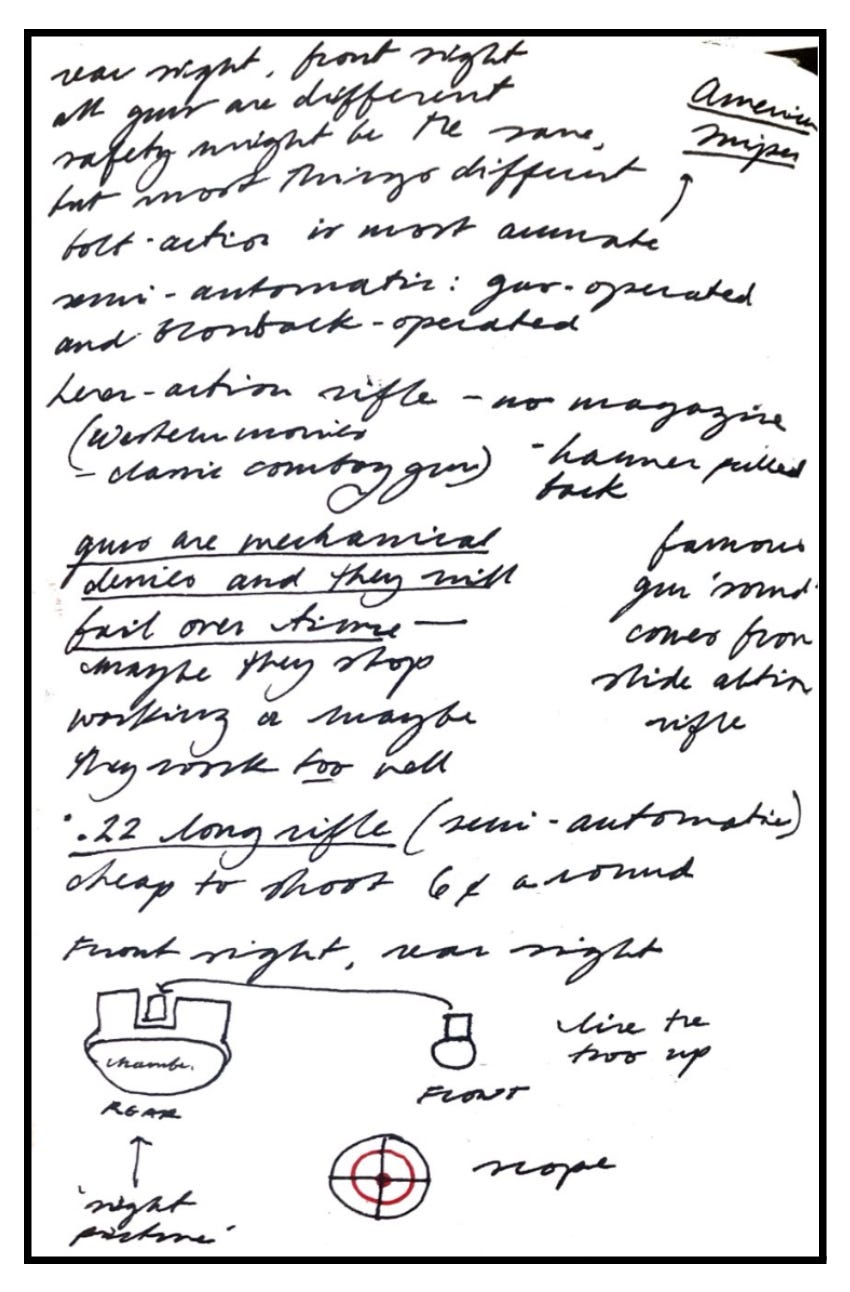 rear sight, front sight
all guns are different
safety might be the same,
but most things different
bolt-action is most accurate
American
Sniper
semi-automatic: gas-operated
and blowback-operated
Lever-action rifle - no magazine
(Western movies
- classic cowboy gun)
- hammer pulled
back
guns are mechanical
devices and they will
fail over time —
maybe they stop
working or maybe
they work too well
famous
gun 'sound'
comes from
slide action
rifle
.22 long rifle (semi-automatic)
cheap to shoot 6¢ a round
Front sight, rear sight
chamber
REAR
FRONT
line the
two up
'sight
picture'
scope